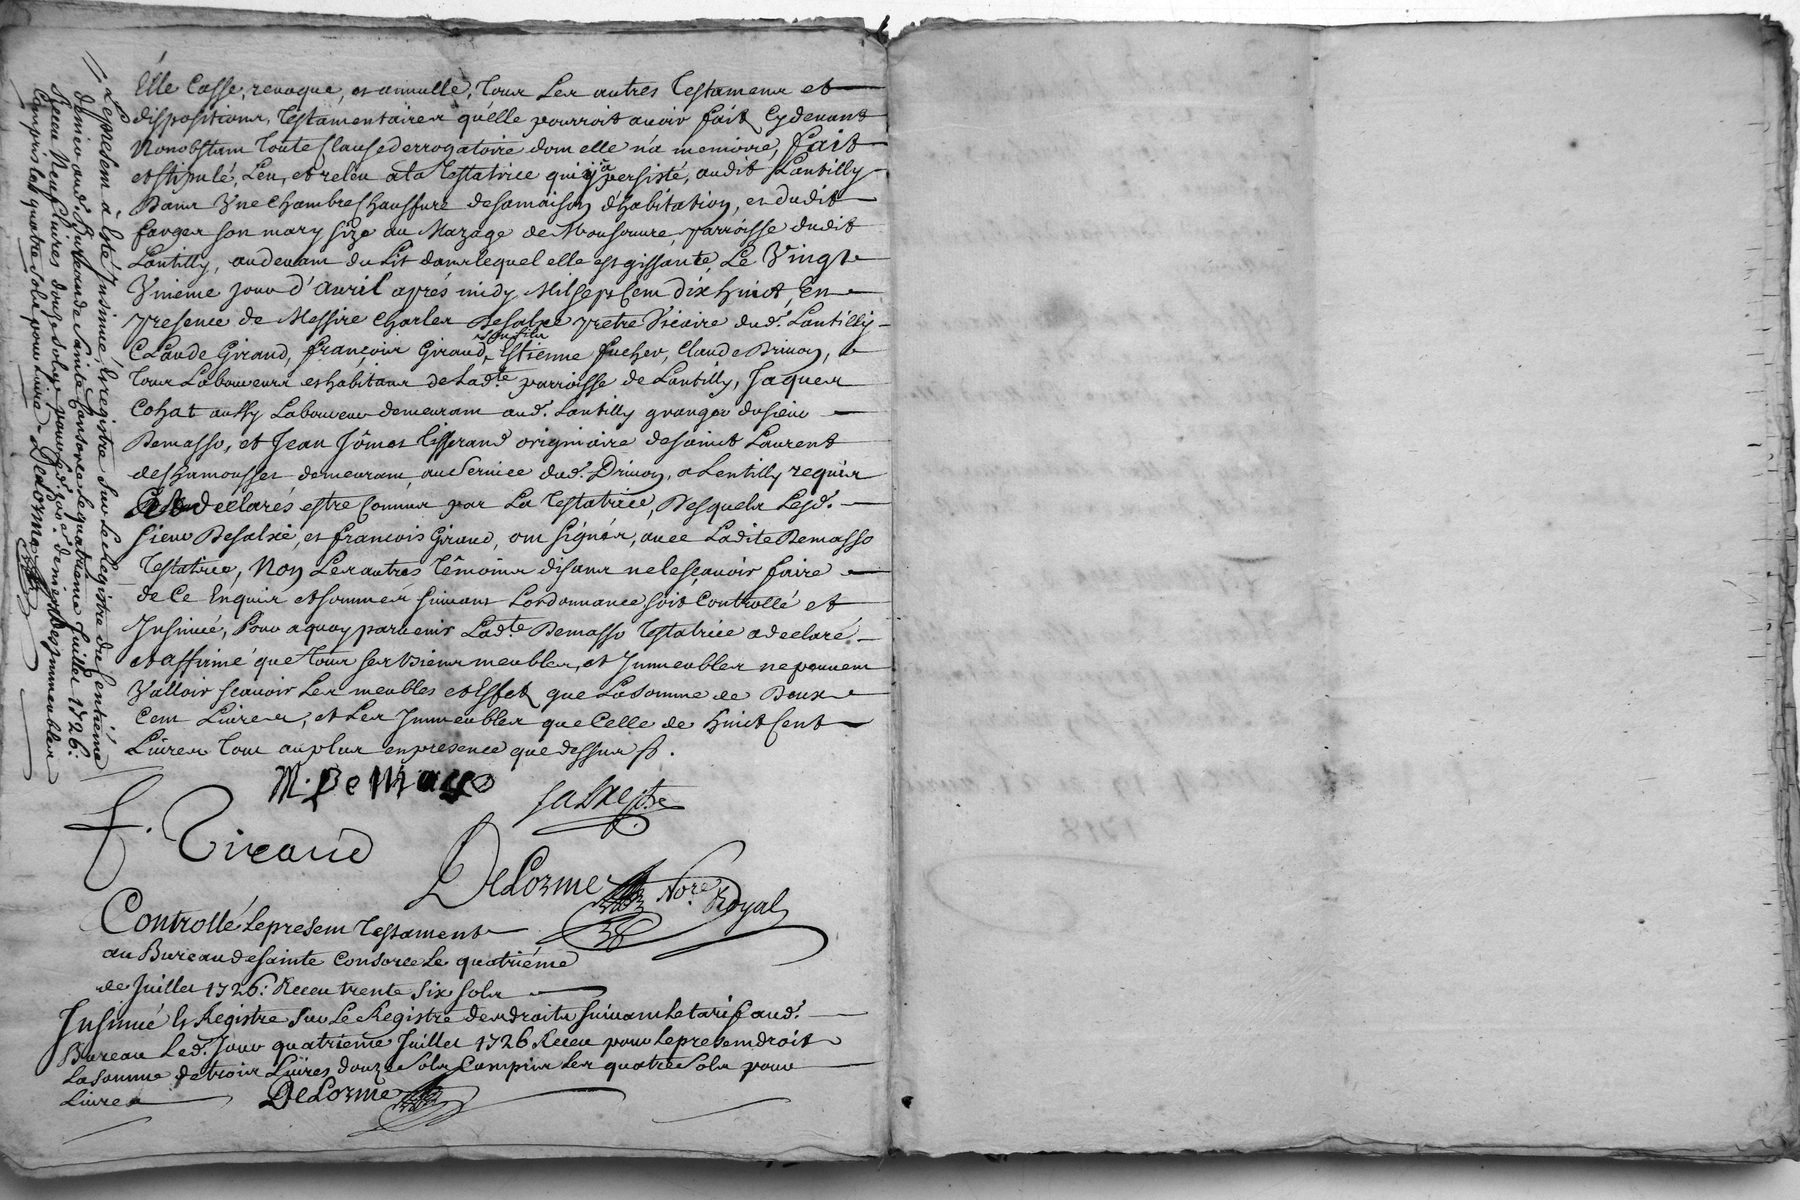 Elle Casse, revoque, et annulle, Tous Les autres Testamens et
dispositions, Testamentaires qu'elle pourroit avoir fait Cydevant
Nonobstant Toute Clause derrogatoire dont elle n'a memoire, fait
et stipulé, Leu, et releu a la Testatrice qui y a persisté, audit Lantilly
Dans Une Chambre Chauffure de sa maison d'habitation, et dudit
farges son mary size au Mazage de parroisse dudit
Lantilly, au devant du Lit dans lequel elle est gissante, Le Vingt
Unieme jour d'Avril aprés midy Mil sept Cent Dix huict, En
presence de Messire Charles Desalxe pretre Vicaire dud.t Lantilly
Claude Giraud, françois Giraud, son fils Estienne fucher, Claude Drivon,
Tous Laboureurs et habitans de Lad.te parroisse de Lantilly, Jaques
Cohat aussy Laboureur demeurant aud. Lantilly granger du sieur
Demasso, et Jean Jômos Tisserand originaire de sainct Laurent
de Chamousset demeurant au Service dud. Drivon, a Lentilly requis
declarés estre Connus par La Testatrice, Desquels Lesd.
sieur Desalxe, et francois Giraud, ont signés, avec Ladite Demasso
Testatrice, Non Les autres Temoins disans ne le sçavoir faire
de Ce Enquis et sommés suivant Lordonnance soit Controllé et
Insinué, Pour a quoy parvenir Lad.te Demasso Testatrice a declaré
et affirmé que Tous ses biens meubles, et Immeubles ne peuvent
Valloir sçavoir Les meubles et Effet que La somme de Deux
Cent Livres, et Les Immeubles que Celle de huict Cent
Livres Tout au plus en presence que dessus
M. De Masso
salxe ptre
f. Giraud
DeLorme No.re Royal
Controllé Le present Testament
au Bureau de sainte Consorce Le quatriéme
de Juillet 1726: Receu trente six sols
Insinué et Registré sur Le Registre des droits suivant Le tarif aud.
Bureau Led. Jour quatrieme Juillet 1726 Receu pour Le present droit
La somme de trois Livres douze sols Compris Les quatre sols pour
Livres DeLorme
Le present a Esté Insinué et registré sur Le Registre du Centiéme
denier au d. Bureau de Sainte Consorce Le quatrieme Juillet 1726:
Receu Neuf Livres douze sols pour Led. droit de des Immeubles
Compris Les quatre sols pour Livre DeLorme